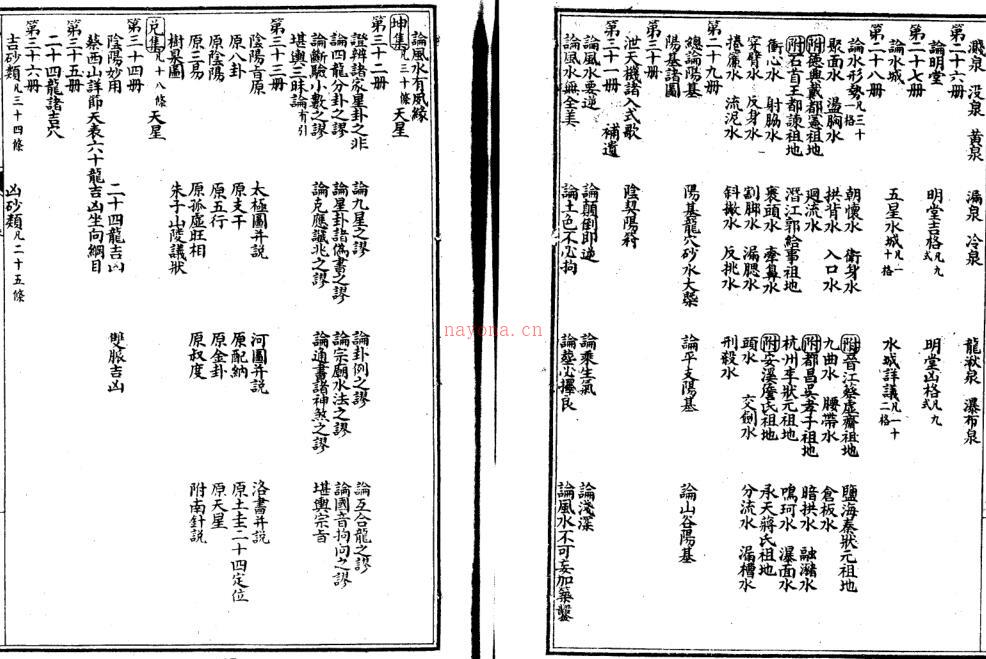 濺泉　沒泉　黃泉　漏泉　冷泉　龍湫泉　瀑布泉
第二十六册
論明堂　明堂吉格凡九式　明堂凶格凡九式
第二十七册
論水城　五星水城凡一十格　水城詳議凡一十二格
第二十八册
論水形勢凡三十一格　朝懷水　衛身水　附晉江蔡虛齋祖地　鹽海秦狀元祖地
聚面水　盪胸水　拱背水　入口水　九曲水　腰帶水　倉板水
附德興戴都憲祖地　迴流水　附都昌吳孝子祖地　暗拱水　融瀦水
附石首王都諫祖地　潛江郭給事祖地　杭州李狀元祖地　鳴珂水　瀑面水
衝心水　射脇水　裹頭水　牽鼻水　附安溪詹氏祖地　承天蔣氏祖地
穿臂水　反身水　割脚水　漏腮水　頭水　交劍水　分流水　漏槽水
捲簾水　流泥水　斜撇水　反挑水　刑殺水
第二十九册
總論陽基　陽基龍穴砂水大槩　論平支陽基　論山谷陽基
陽基諸圖
第三十册
泄天機諸入式歌　陰契陽符
第三十一册　補遺
論風水要逆　論顛倒即逆　論乘生氣　論淺深
論風水無全美　論土色不必拘　論塟必擇良　論風水不可妄加築鑿
論風水有夙緣
坤集凡三十條天星
第三十二册
證辨諸家星卦之非　論九星之謬　論卦例之謬　論互合龍之謬
論四龍分卦之謬　論星卦諸偽書之謬　論宗廟水法之謬　論國音拘向之謬
論斷驗小數之謬　論克應讖兆之謬　論通書諸神煞之謬　堪輿宗旨
堪輿三昧論有引
第三十三册
陰陽百原　太極圖并説　河圖并説　洛書并説
原八卦　原支干　原配納　原土圭二十四定位
原陰陽　原五行　原金卦　原天星
原三易　原孤虛旺相　原叔度　附南針説
樹果圖　朱子山陵議狀
兌集凡十八條天星
第三十四册
陰陽妙用　二十四龍吉凶　雙脤吉凶
蔡西山詳節天表六十龍吉凶坐向綱目
第三十五册
二十四龍諸吉穴
第三十六册
吉砂類凡三十四條　凶砂類凡二十五條
nayona.cn